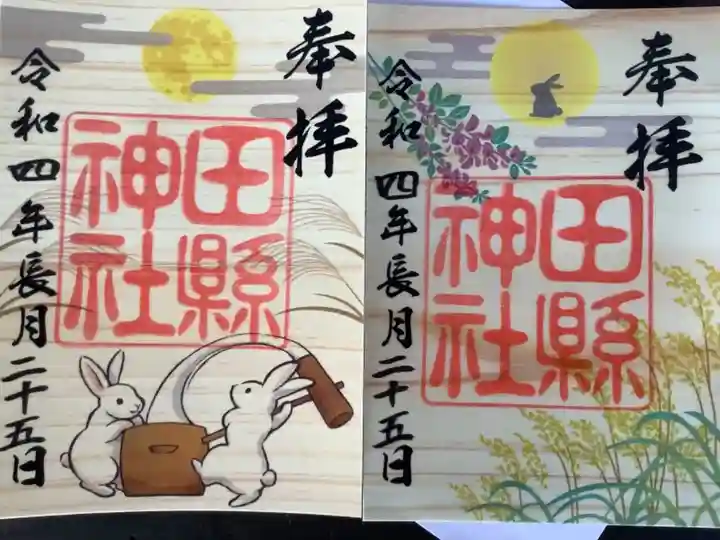 奉拝
田縣
神社
令和四年長月二十五日
奉拝
田縣
神社
令和四年長月二十五日